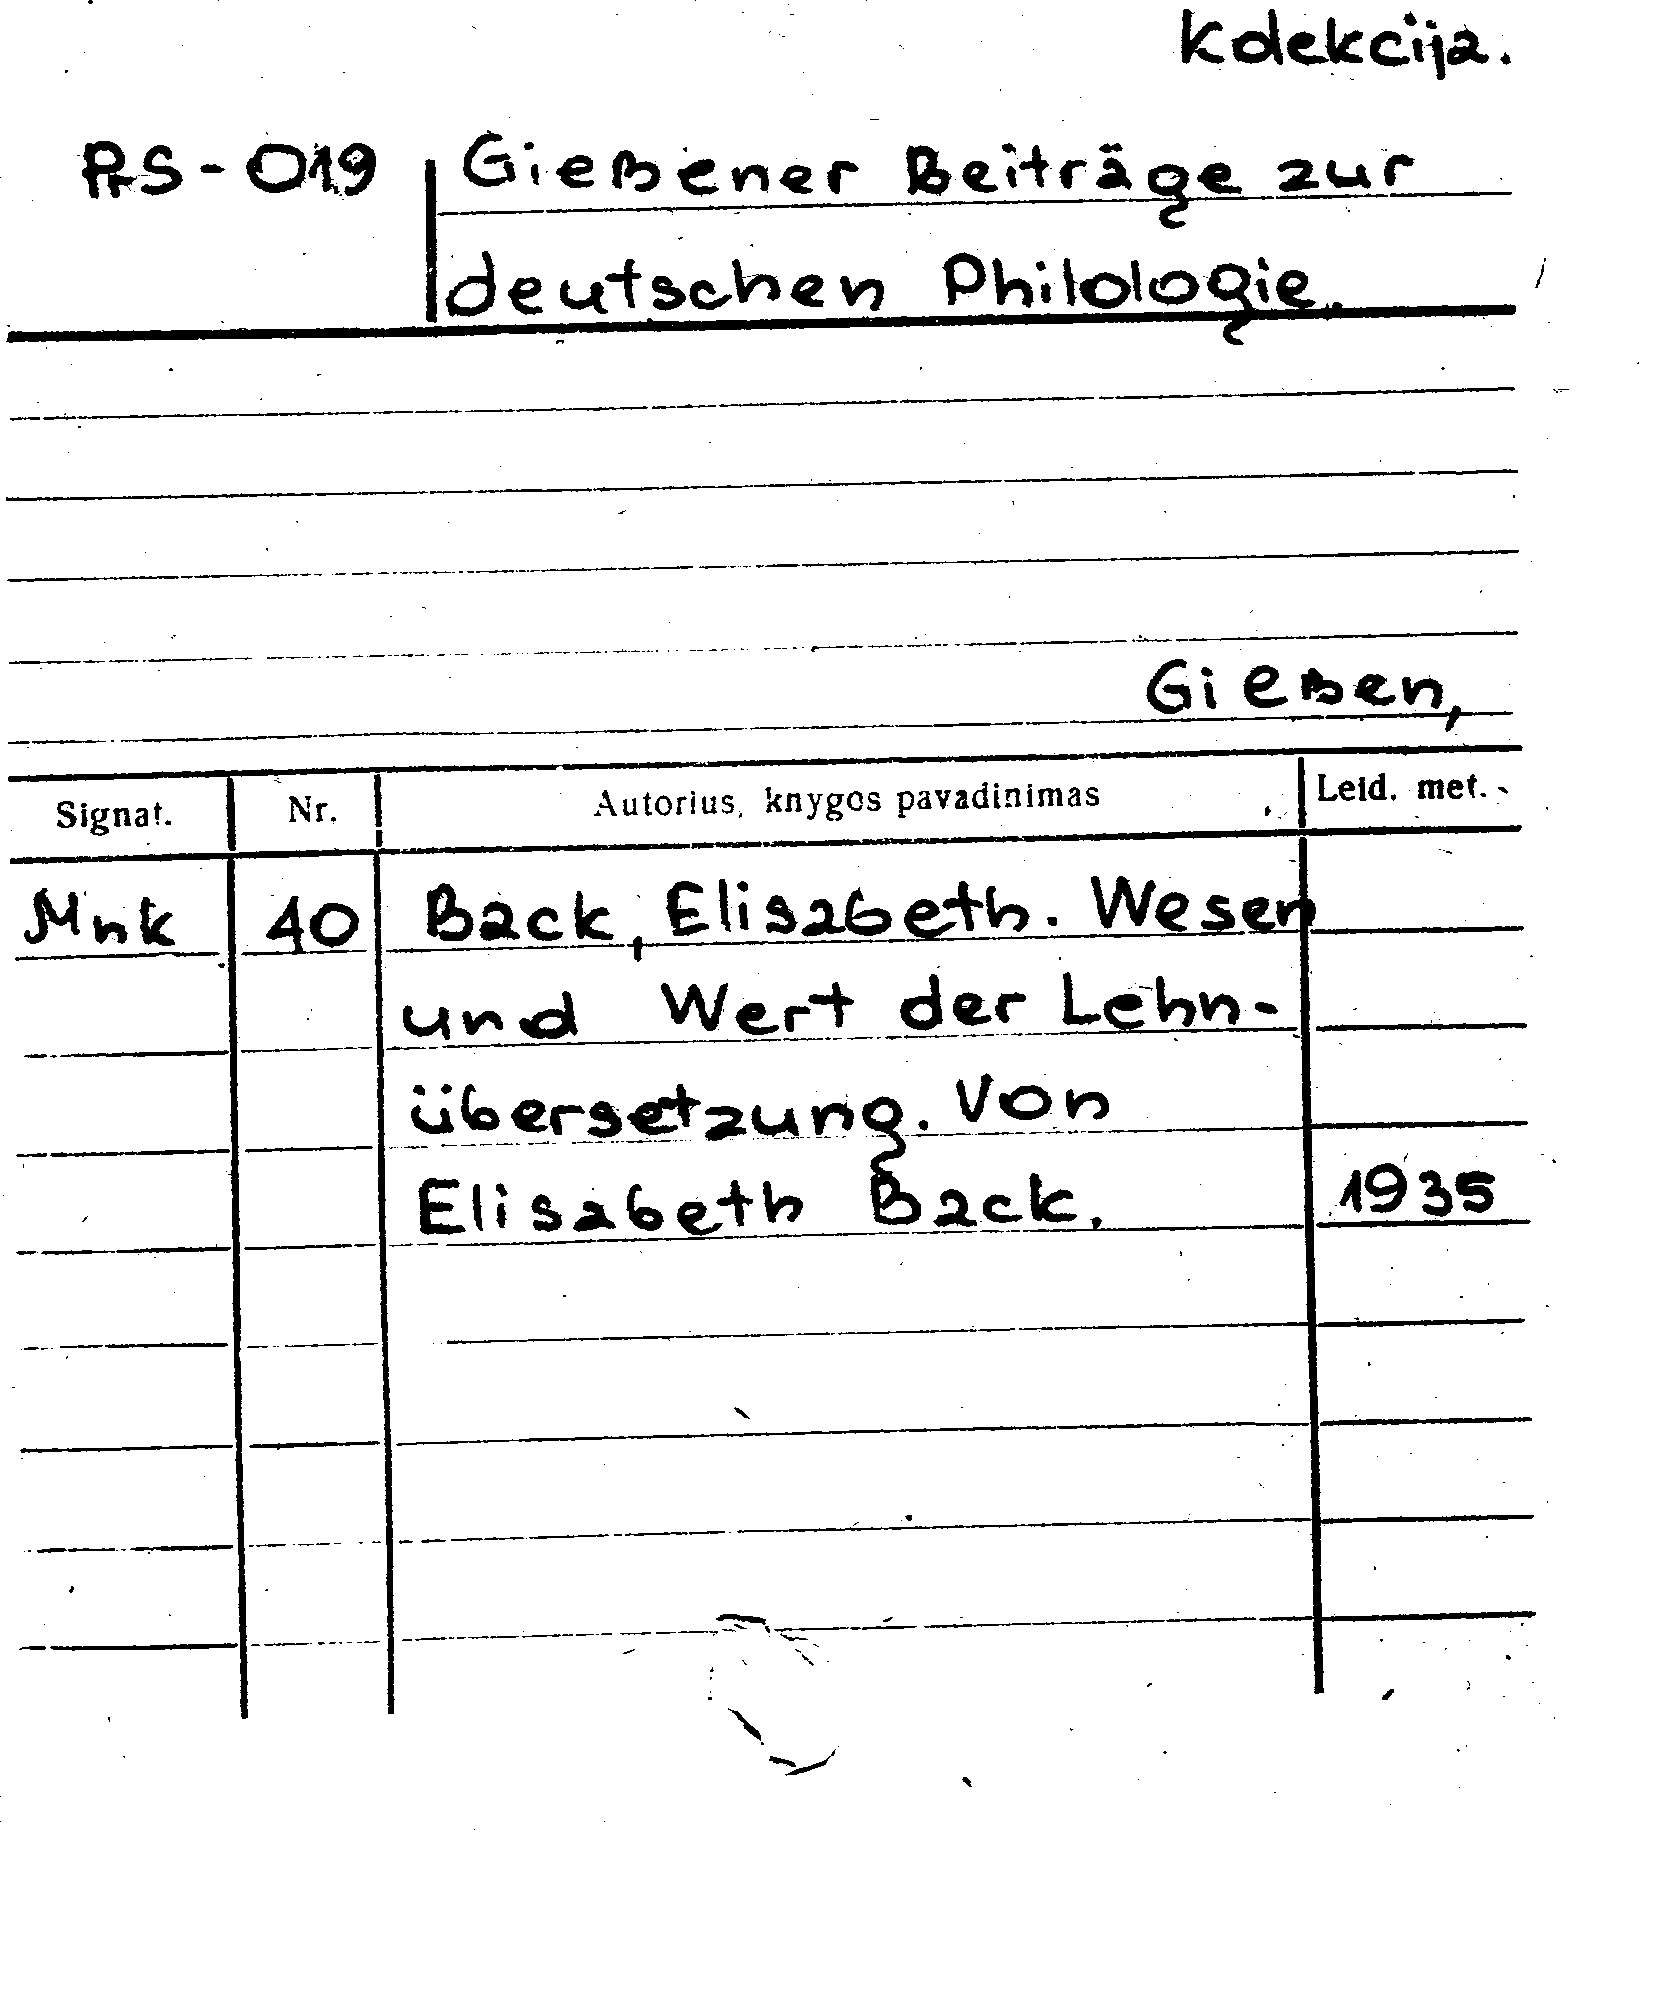 Kolekcija.
PrS-019 Gießener Beiträge zur
deutschen Philologie.
Gießen,
Signat. Nr. Autorius, knygos pavadinimas Leid. met.
Mnk 40 Back, Elisabeth. Wesen
und Wert der Lehn-
übersetzung. Von
Elisabeth Back. 1935